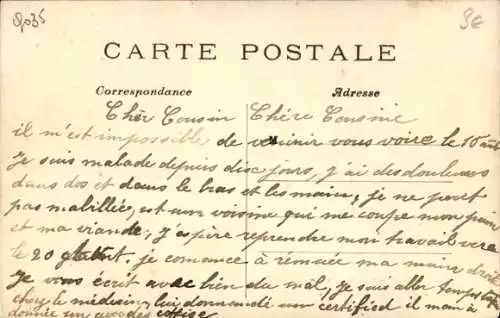 9035
9e
CARTE POSTALE
Correspondance
Adresse
Chér Cousin Chére Cousine
il m'est impossible de venir vous voire le 15 août
Je suis malade depuis dix jours, j'ai des douleures
dans dos et dans le bras et les mains, je ne peut
pas mabillée, est une voisine qui me coupe mon pain
et ma viande, j'éspère reprendre mon travail vers
le 20 je comance à rémuée ma main droite
Je vous écrit avec bien du mal, je suis aller
chez le médecin, lui demandé un certified il man à
donnée une